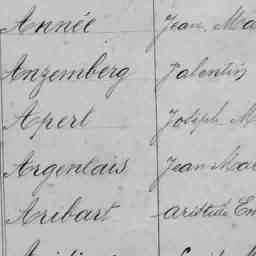 Année Jean, Ma
Anzemberg Valentin
Apert Joseph M
Argentais Jean Mar
Aribart Aristide Em